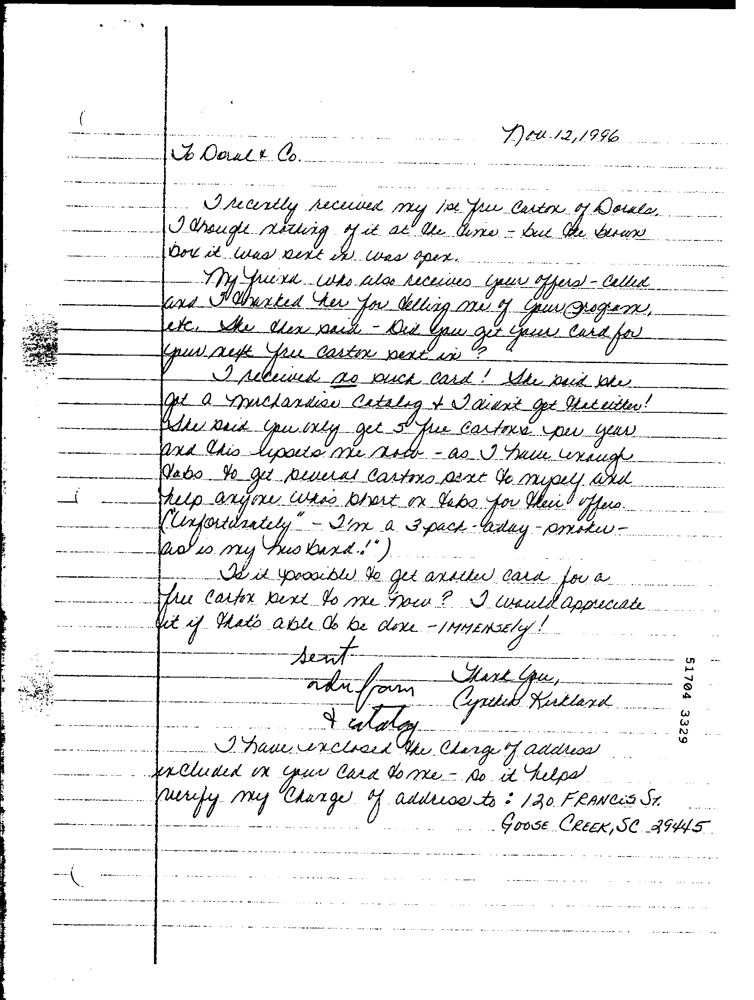 Nov. 12, 1996
To Doral & Co.
I recently received my 1st free carton of Dorals.
I thought nothing of it at the time - but the brown
box it was sent in was open.
My friend who also receives your offers - called
and I thanked her for telling me of your program,
etc. She then said - Did you get your card for
your next free carton sent in?
I received no such card! She said she
got a merchandise catalog & I didn't get that either!
She said you only get 5 free cartons per year
and this upsets me now - as I have enough
tabs to get several cartons sent to myself and
help anyone who's short on tabs for their offers.
("Unfortunately" - I'm a 3 pack-a day-smoker -
as is my husband!")
Is it possible to get another card for a
free carton sent to me now? I would appreciate
it if that's able to be done - IMMENSELY!
sent
Thank You,
form
Cynthia Kirkland
& catalog
I have enclosed the change of address
included in your card to me - so it helps
verify my change of address to: 120 FRANCIS ST.
GOOSE CREEK, SC 29445
51704 3329